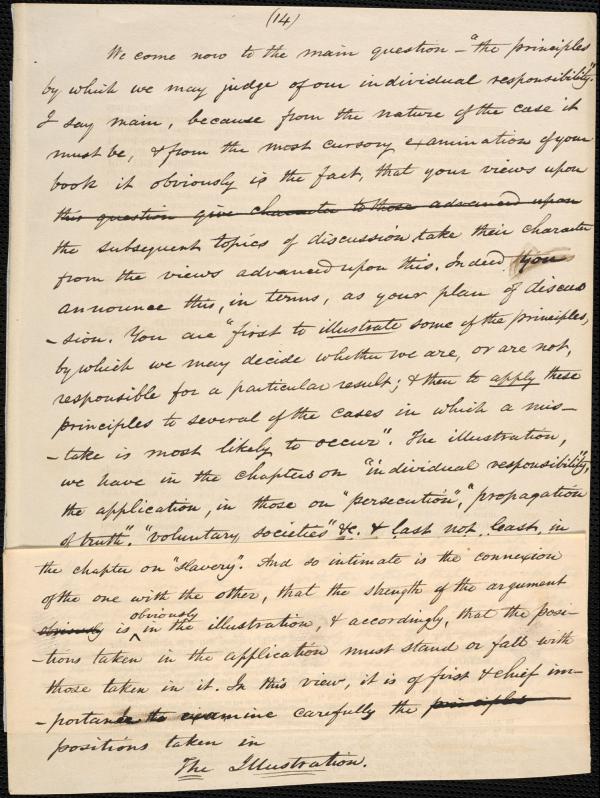 (14)
We come now to the main question – "the principles
by which we may judge of our individual responsibility."
I say main, because from the nature of the case it
must be, & from the most cursory examination of your
book it obviously is the fact, that your views upon
this question give character to those advanced upon
the subsequent topics of discussion take their character
from the views advanced upon this. Indeed you
announce this, in terms, as your plan of discus
-sion. You are "first to illustrate some of the principles,
by which we may decide whether we are, or are not,
responsible for a particular result; & then to apply these
principles to several of the cases in which a mis-
-take is most likely to occur". The illustration,
we have in the chapters on "individual responsibility",
the application, in those on "persecution", "propagation
of truth". "voluntary societies" &c. & last not least, in
the chapter on "slavery". And so intimate is the connexion
of the one with the other, that the strength of the argument
obviously is obviously in the illustration, & accordingly, that the posi-
-tions taken in the application must stand or fall with
those taken in it. In this view, it is of first & chief im-
-portance to examine carefully the principles
positions taken in
The Illustration.